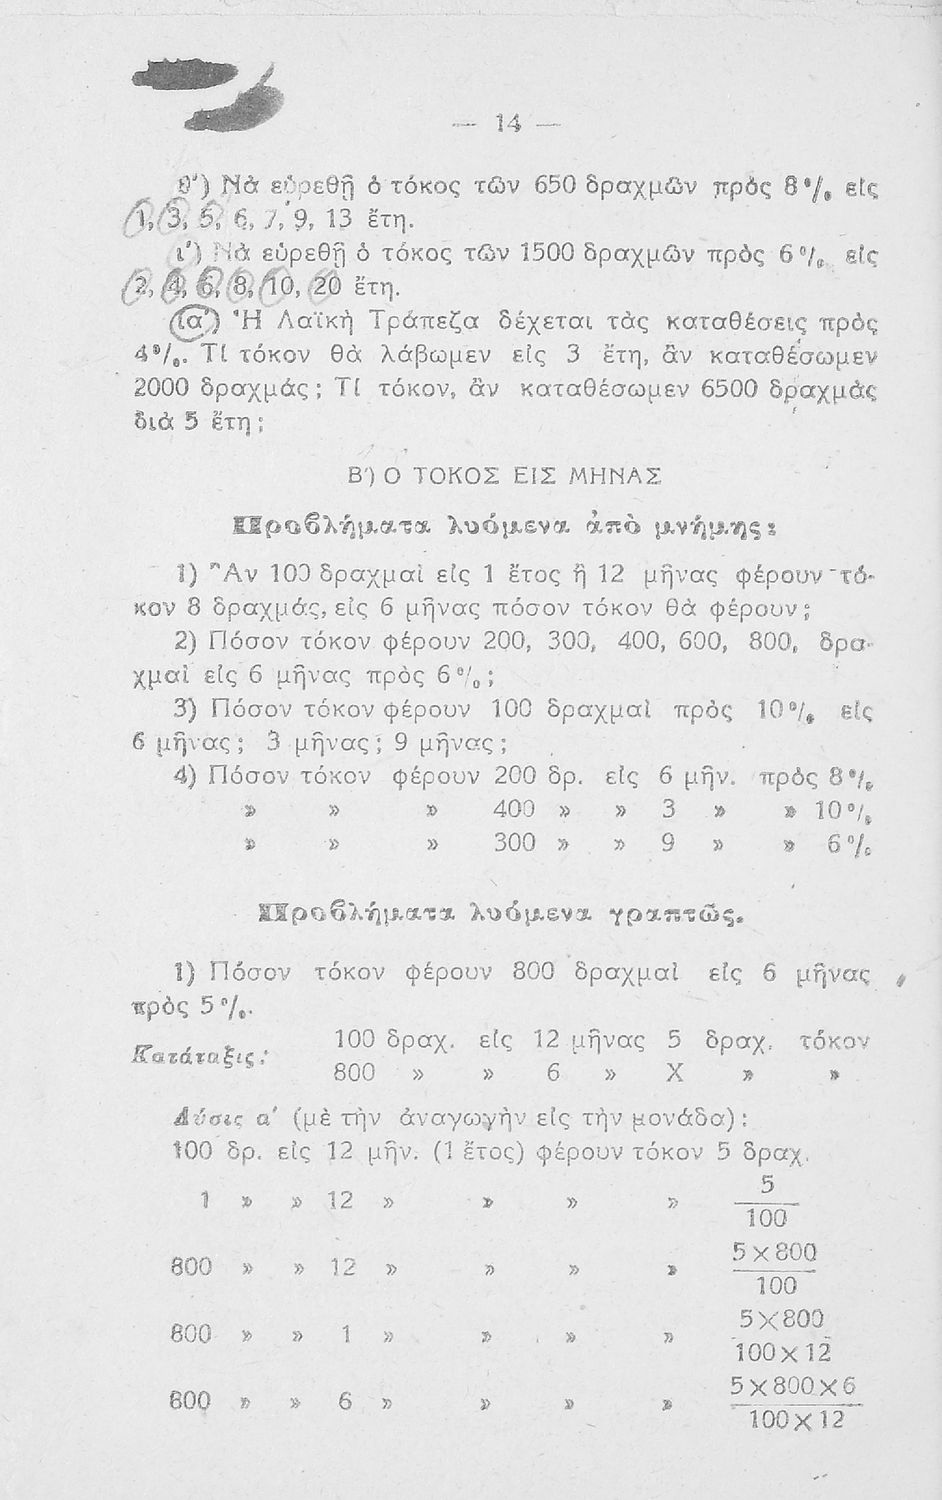 — 14 —
θ') Νὰ εὑρεθῇ ὁ τόκος τῶν 650 δραχμῶν πρὸς 8 % εἰς
1, 3, 5, 6, 7, 9, 13 ἔτη.
ι') Νὰ εὑρεθῇ ὁ τόκος τῶν 1500 δραχμῶν πρὸς 6 % εἰς
2, 4, 6, 8, 10, 20 ἔτη.
ια') Ἡ Λαϊκὴ Τράπεζα δέχεται τὰς καταθέσεις πρὸς
4 %. Τί τόκον θὰ λάβωμεν εἰς 3 ἔτη, ἂν καταθέσωμεν
2000 δραχμάς ; Τί τόκον, ἂν καταθέσωμεν 6500 δραχμὰς
διὰ 5 ἔτη ;
Β') Ο ΤΟΚΟΣ ΕΙΣ ΜΗΝΑΣ
Προβλήματα λυόμενα ἀπὸ μνήμης :
1) Ἂν 100 δραχμαὶ εἰς 1 ἔτος ἢ 12 μῆνας φέρουν τό-
κον 8 δραχμάς, εἰς 6 μῆνας πόσον τόκον θὰ φέρουν ;
2) Πόσον τόκον φέρουν 200, 300, 400, 600, 800, δρα-
χμαὶ εἰς 6 μῆνας πρὸς 6 % ;
3) Πόσον τόκον φέρουν 100 δραχμαὶ πρὸς 10 % εἰς
6 μῆνας ; 3 μῆνας ; 9 μῆνας ;
4) Πόσον τόκον φέρουν 200 δρ. εἰς 6 μῆν. πρὸς 8 %
» » » 400 » » 3 » » 10 %
» » » 300 » » 9 » » 6 %
Προβλήματα λυόμενα γραπτῶς.
1) Πόσον τόκον φέρουν 800 δραχμαὶ εἰς 6 μῆνας
πρὸς 5 %.
Κατάταξις : 100 δραχ. εἰς 12 μῆνας 5 δραχ. τόκον
800 » » 6 » Χ » »
Λύσις α' (μὲ τὴν ἀναγωγὴν εἰς τὴν μονάδα) :
100 δρ. εἰς 12 μῆν. (1 ἔτος) φέρουν τόκον 5 δραχ.
1 » » 12 » » » » 5
100
800 » » 12 » » » » 5 × 800
100
800 » » 1 » » » » 5 × 800
100 × 12
800 » » 6 » » » » 5 × 800 × 6
100 × 12